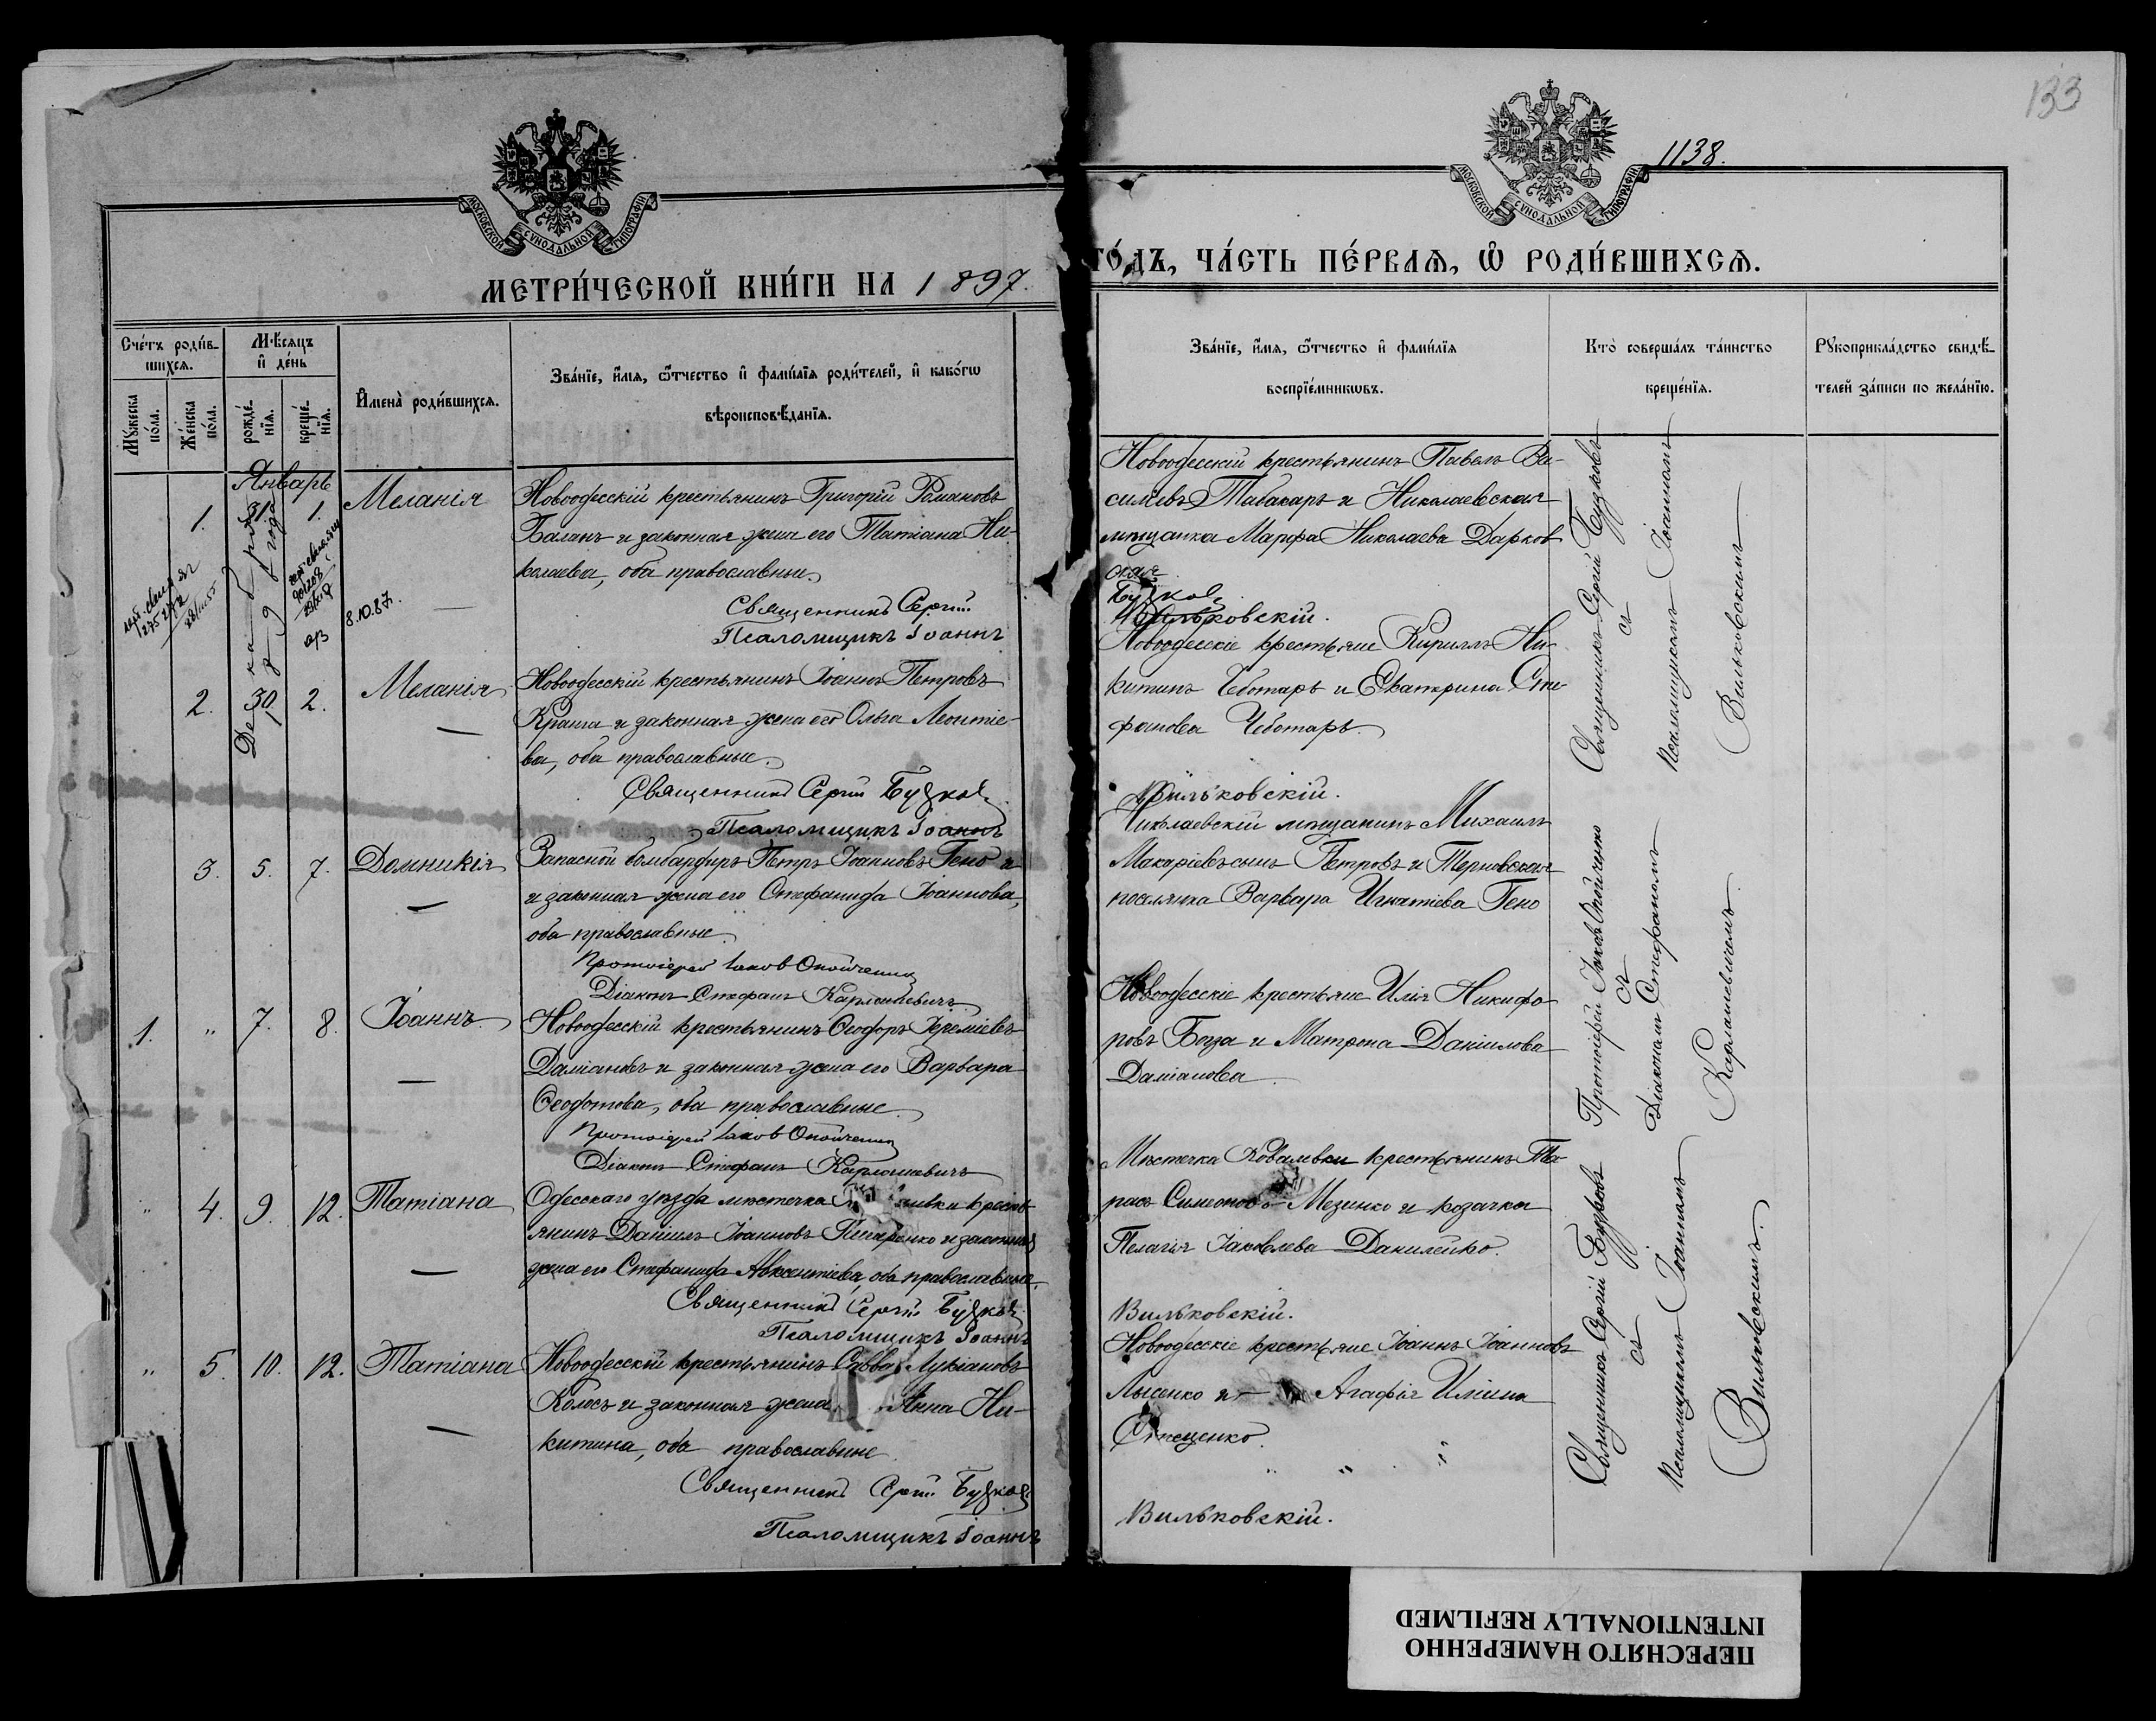 133
1138.
МОСКОВСКОЙ СѴНОДАЛЬНОЙ ТИПОГРАФІИ
МОСКОВСКОЙ СѴНОДАЛЬНОЙ ТИПОГРАФІИ
МЕТРИ́ЧЕСКОЙ КНИ́ГИ НА 1897.
ГО́ДЪ, ЧА́СТЬ ПЕ́РВАѦ, Ѡ҆ РОДИ́ВШИХСѦ.
Сче́тъ роди́в-
шихсѧ.
Мꙋ́жеска по́ла.
Же́нска по́ла.
Мѣ́сѧцъ и҆ де́нь
рожде́-
нїѧ.
креще́-
нїѧ.
И҆мена̀ роди́вшихсѧ.
Зва́нїе, и҆́мѧ, ѻ҆́тчество и҆ фами́лїѧ роди́телей, и҆ како́гѡ
вѣроисповѣ́данїѧ.
Зва́нїе, и҆́мѧ, ѻ҆́тчество и҆ фами́лїѧ
воспрїе́мникѡвъ.
Кто̀ соверша́лъ та́инство
креще́нїѧ.
Рꙋкоприкла́дство свидѣ́-
телей за́писи по жела́нїю.
Январь
1. 31. 1. Меланія
Декабря
года
8.10.87.
Новоодесскій крестьянинъ Григорій Романовъ
Баланъ и законная жена его Татіана Ни-
колаева, оба православные.
Священникъ Сергій
Псаломщикъ Іоаннъ
Новоодесскій крестьянинъ Павелъ Ва-
сильевъ Табакаръ и Николаевская
мѣщанка Марфа Николаева Дарков
ская
Буzков
Вильковскій.
Священникъ Сергій Буzковъ
съ
Псаломщикомъ Іоанномъ
Вильковскимъ
2. 30. 2. Меланія
Новоодесскій крестьянинъ Іоаннъ Петровъ
и законная жена его Ольга Леонтіе-
ва, оба православные.
Священникъ Сергій
Псаломщикъ Іоаннъ
Новоодесскіе крестьяне Кириллъ Ни-
китинъ Чеботаръ и Екатерина Сте-
фанова Чеботаръ.
Вильковскій.
3. 5. 7. Домникія
Запасной бомбардиръ Петръ Іоанновъ Гено и
и законная жена его Стефанида Іоаннова,
оба православные.
Протоіерей Іаковъ
Діаконъ Стефанъ Карлашевичъ
Николаевскій мѣщанинъ Михаилъ
Макаріевъ сынъ Петровъ и Терновская
поселянка Варвара Игнатіева Гено
Протоіерей Іаковъ
съ
Діакономъ Стефаномъ
Карлашевичемъ
1. " 7. 8. Іоаннъ
Новоодесскій крестьянинъ Ѳеодоръ Іереміевъ
Даміановъ и законная жена его Варвара
Ѳеодотова, оба православные.
Протоіерей Іаковъ
Діаконъ Стефанъ Карлашевичъ
Новоодесскіе крестьяне Илія Никифо
ровъ Боца и Матрона Даніилова
Даміанова.
" 4. 9. 12. Татіана
Одесскаго уѣзда мѣстечка кресть
янинъ Даніилъ Іоанновъ и законная
жена его Стефанида Авксентіева, оба православные.
Священникъ Сергій
Псаломщикъ Іоаннъ
Мѣстечка Ковалевки крестьянинъ Та-
расъ Симеоновъ Мезинко и козачка
Пелагія Іаковлева Данилейко.
Вильковскій.
Священникъ Сергій
съ
Псаломщикомъ Іоанномъ
Вильковскимъ.
" 5. 10. 12. Татіана
Новоодесскій крестьянинъ Савва Лукіановъ
Колосъ и законная жена Анна Ни-
китина, оба православные.
Священникъ Сергій
Псаломщикъ Іоаннъ
Новоодесскіе крестьяне Іоаннъ Іоанновъ
Лысенко и Агафія Иліина
Стеценко.
" " "
Вильковскій.
ПЕРЕСНЯТО НАМЕРЕННО
INTENTIONALLY REFILMED